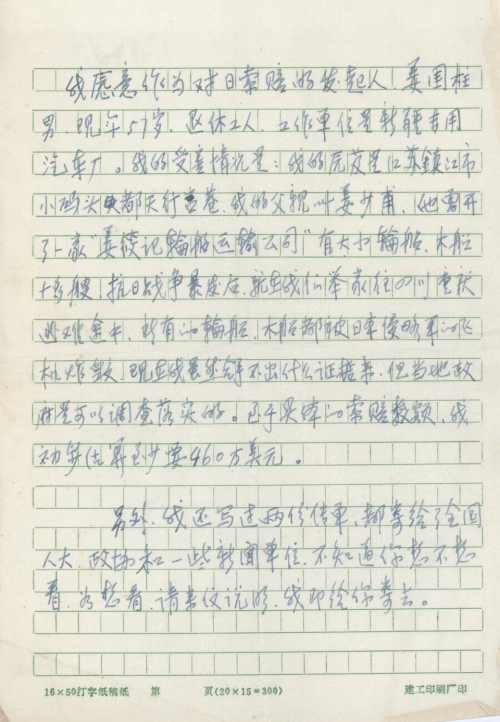 我愿意作为对日索赔的发起人，姜国柱
男，现年57岁，退休工人，工作单位是新疆专用
汽车厂。我的受害情况是：我的原籍是江苏镇江市
小码头都天行宫巷，我的父亲叫姜少甫，他曾开
了一家"姜 记轮船运输公司"有大小轮船、木船
十多艘，抗日战争暴发后，就在我们举家住四川重庆
逃难途中，所有的轮船、木船都被日本侵略军的飞
机炸毁，现在我虽然拿不出什么证据来，但当地政
府是可以调查落实的。至于具体的索赔数额，我
初步估算至少要460万美元。
另外，我还写过两份传单，都寄给了全国
人大、政协和一些新闻单位，不知道你想不想
看，如想看，请来信说明，我即给你寄去。
16×50打字纸稿纸 第 页(20×15=300) 建工印刷厂印